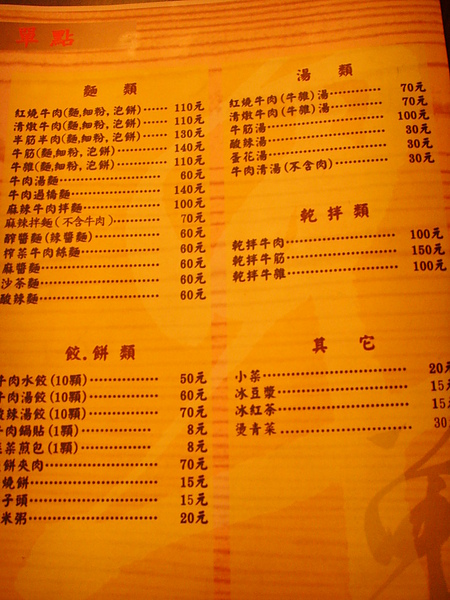 單點
麵類
紅燒牛肉(麵,細粉,泡餅)⋯⋯ 110元
清燉牛肉(麵,細粉,泡餅)⋯⋯ 110元
半筋半肉(麵,細粉,泡餅)⋯⋯ 130元
牛筋(麵,細粉,泡餅)⋯⋯ 140元
牛雜(麵,細粉,泡餅)⋯⋯ 110元
牛肉湯麵⋯⋯ 60元
牛肉過橋麵⋯⋯ 140元
麻辣牛肉拌麵⋯⋯ 100元
麻辣拌麵(不含牛肉)⋯⋯ 70元
醇醬麵(辣醬麵)⋯⋯ 60元
榨菜牛肉絲麵⋯⋯ 60元
麻醬麵⋯⋯ 60元
沙茶麵⋯⋯ 60元
酸辣麵⋯⋯ 60元
餃.餅類
牛肉水餃(10顆)⋯⋯ 50元
牛肉湯餃(10顆)⋯⋯ 60元
酸辣湯餃(10顆)⋯⋯ 70元
牛肉鍋貼(1顆)⋯⋯ 8元
菜煎包(1顆)⋯⋯ 8元
餅夾肉⋯⋯ 70元
燒餅⋯⋯ 15元
子頭⋯⋯ 15元
米粥⋯⋯ 20元
湯類
紅燒牛肉(牛雜)湯⋯⋯ 70元
清燉牛肉(牛雜)湯⋯⋯ 70元
牛筋湯⋯⋯ 100元
酸辣湯⋯⋯ 30元
蛋花湯⋯⋯ 30元
牛肉清湯(不含肉)⋯⋯ 30元
乾拌類
乾拌牛肉⋯⋯ 100元
乾拌牛筋⋯⋯ 150元
乾拌牛雜⋯⋯ 100元
其它
小菜⋯⋯ 20元
冰豆漿⋯⋯ 15元
冰紅茶⋯⋯ 15元
燙青菜⋯⋯ 30